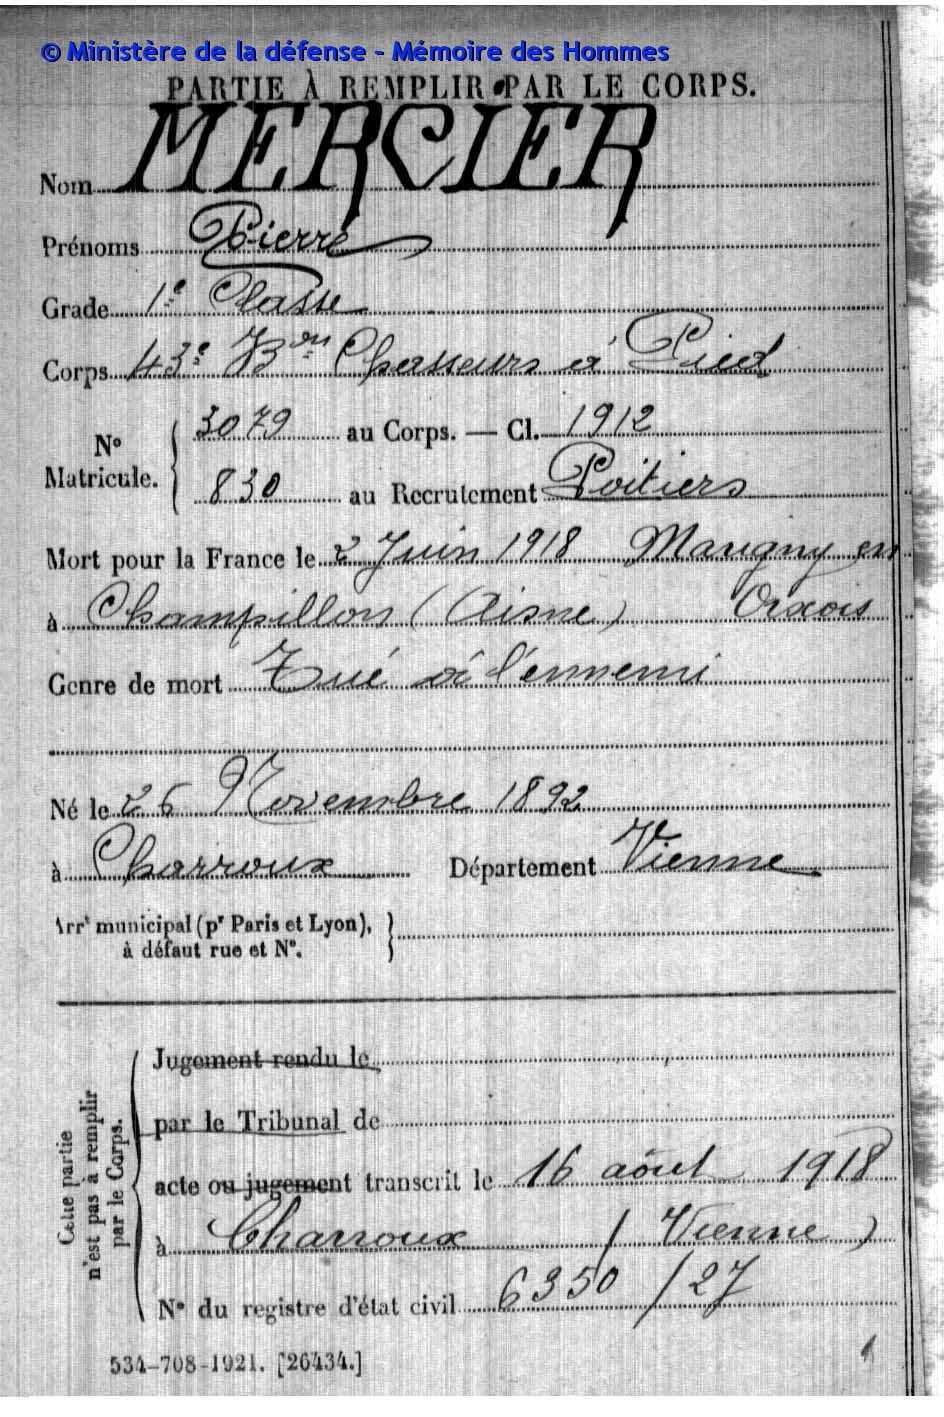 © Ministère de la défense - Mémoire des Hommes
PARTIE À REMPLIR PAR LE CORPS.
Nom MERCIER
Prénoms Pierre
Grade 1e Classe
Corps 43e Bon Chasseurs à Pied
N° Matricule. { 3079 au Corps. — Cl. 1912
830 au Recrutement Poitiers
Mort pour la France le 2 Juin 1918 Marigny en
à Champillon (Aisne) Orxois
Genre de mort Tué à l'ennemi
Né le 26 Novembre 1892
à Charroux Département Vienne
Arrt municipal (pr Paris et Lyon), }
à défaut rue et N°.
Cette partie n'est pas à remplir par le Corps.
Jugement rendu le
par le Tribunal de
acte ou jugement transcrit le 16 août 1918
à Charroux (Vienne)
N° du registre d'état civil 6350/27
534-708-1921. [26434.]